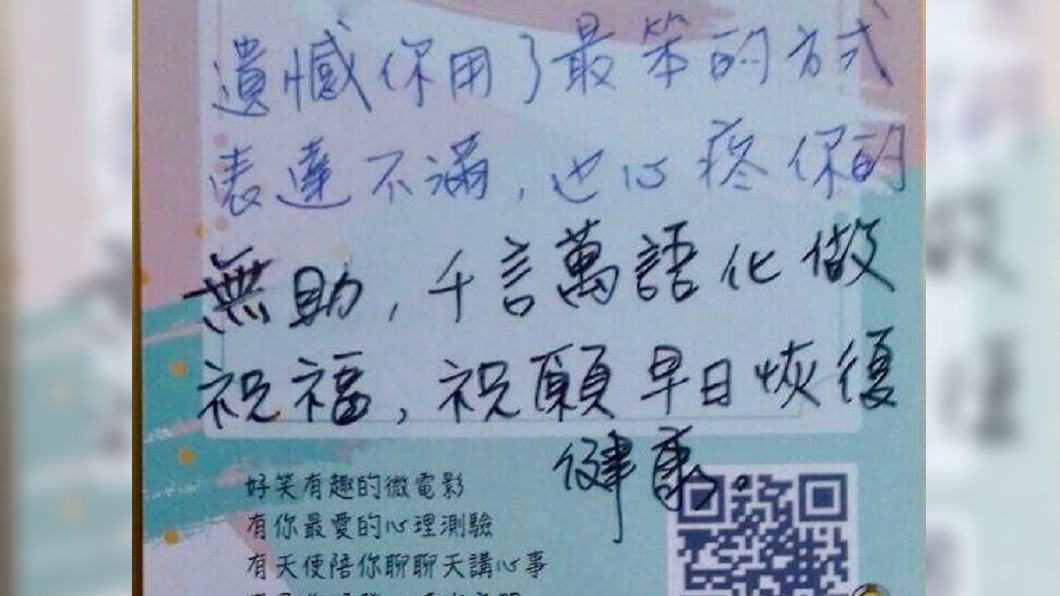 遺憾你用了最笨的方式
表達不滿，也心疼你的
無助，千言萬語化做
祝福，祝願早日恢復
健康。
好笑有趣的微電影
有你最愛的心理測驗
有天使陪你聊聊天講心事